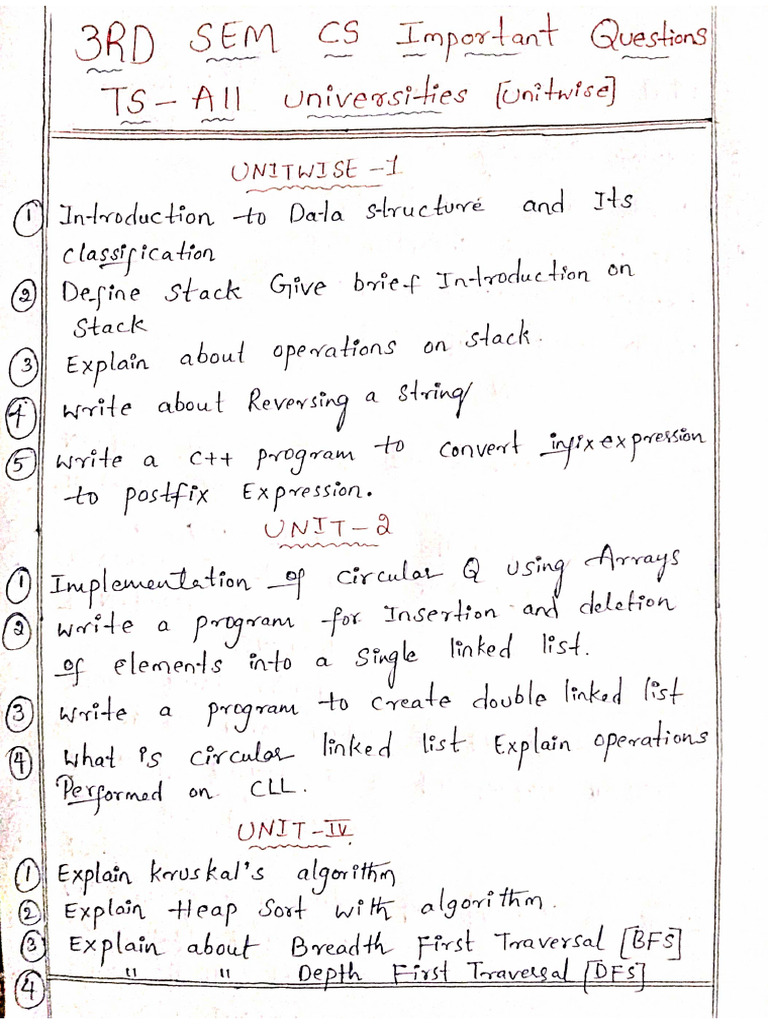 3RD SEM CS Important Questions
TS - All universities [Unitwise]
UNITWISE - 1
① Introduction to Data structure and Its
classification
② Define Stack Give brief Introduction on
Stack
③ Explain about operations on stack.
④ Write about Reversing a string
⑤ Write a C++ program to convert infix expression
to postfix Expression.
UNIT - 2
① Implementation of circular Q using Arrays
② Write a program for Insertion and deletion
of elements into a single linked list.
③ Write a program to create double linked list
④ What is circular linked list Explain operations
Performed on CLL.
UNIT - IV
① Explain kruskal's algorithm
② Explain Heap Sort with algorithm.
③ Explain about Breadth First Traversal [BFS]
④ " " Depth First Traversal [DFS]